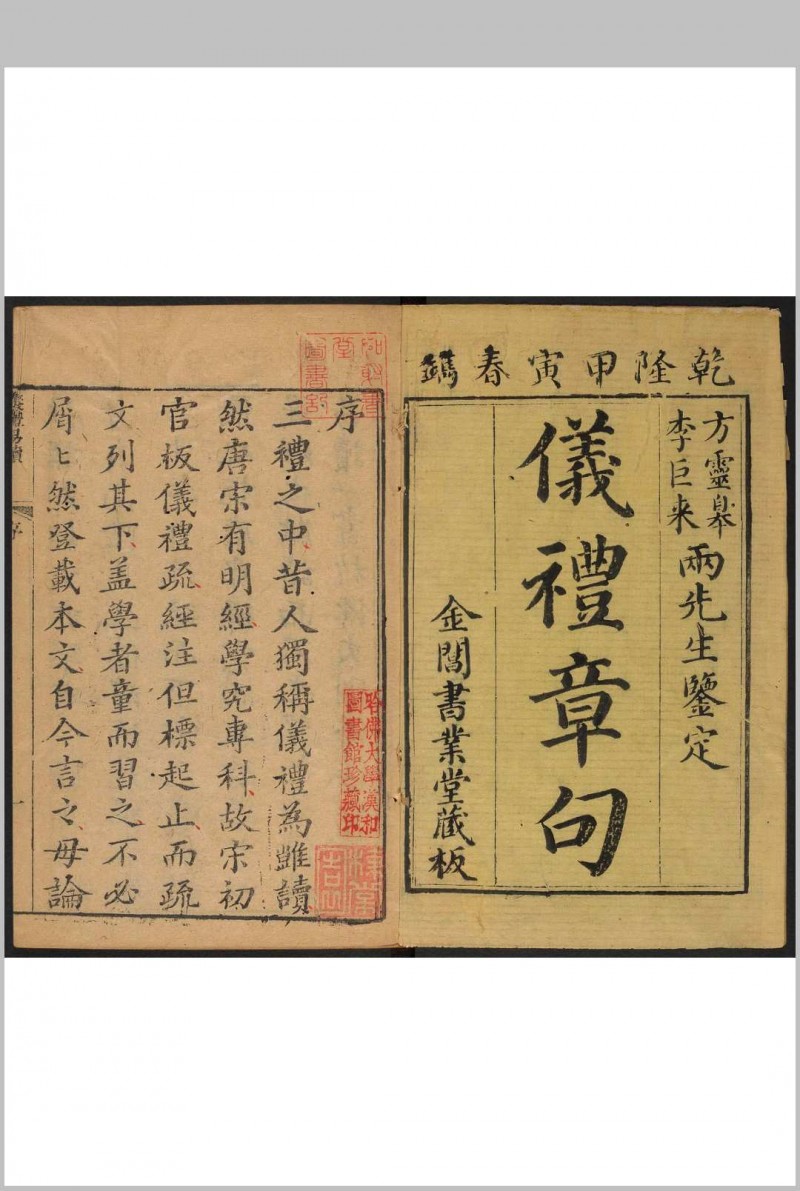 乾隆甲寅春鐫
方靈皋
李巨来
兩先生鑒定
儀禮章句
金閶書業堂藏板
序
三禮之中昔人獨稱儀禮為雖讀
然唐宋有明經學究專科故宋初
官板儀禮疏經注但標起止而疏
文列其下盖學者童而習之不必
屑〻然登載本文自今言之毋論
哈佛大學漢和
圖書館珍藏印
序